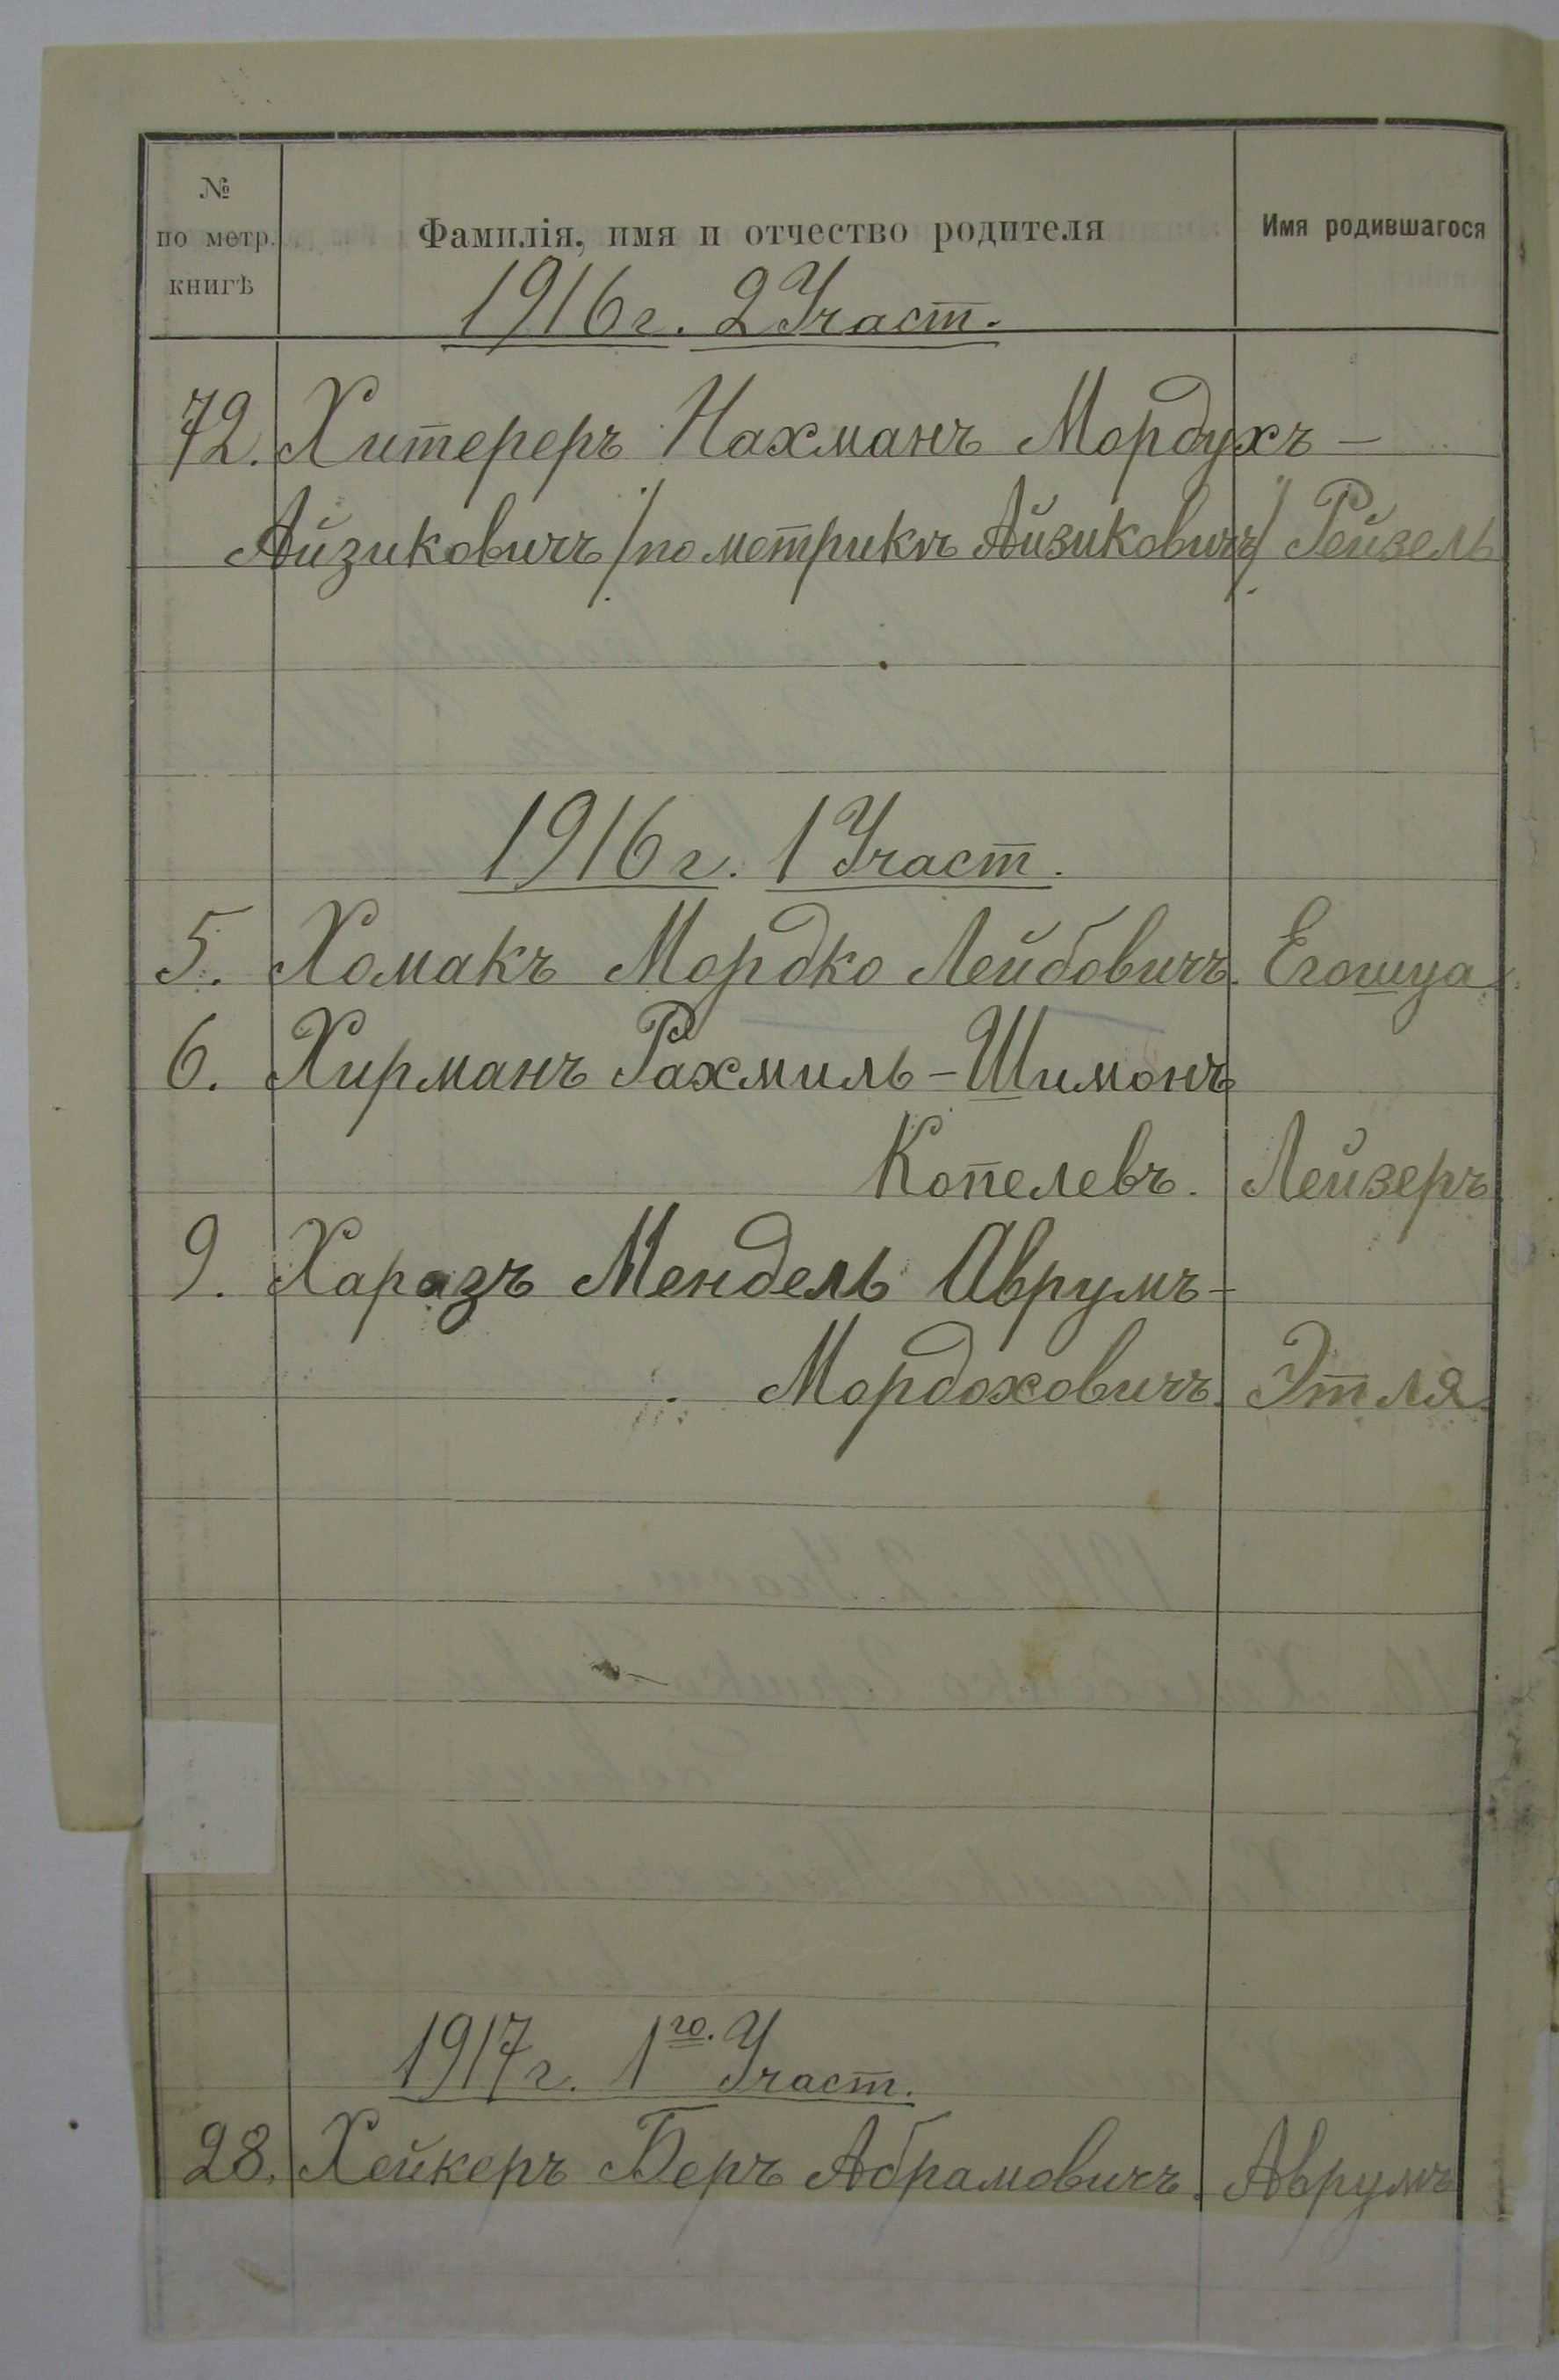 № по метр. книгѣ
Фамилія, имя и отчество родителя
Имя родившагося
1916 г. 2 Участ.
72. Хитереръ Нахманъ Мордухъ -
Айзиковичъ /по метрикѣ Айзиковичъ/ Рейзель
1916 г. 1 Участ.
5. Хомакъ Мордко Лейбовичъ. Егошуа
6. Хирманъ Рахмиль - Шимонъ
Копелевъ. Лейзеръ
9. Харазъ Мендель Аврумъ -
Мордоховичъ. Этля
1917 г. 1го. Участ.
28. Хейкеръ Беръ Абрамовичъ. Аврумъ